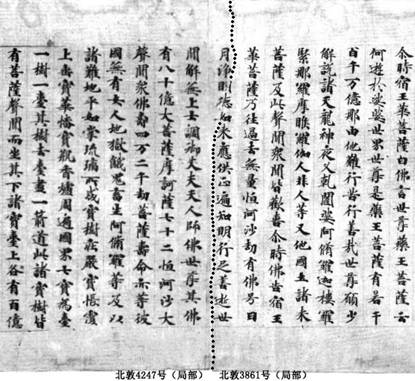 尒時宿王華菩薩白佛言世尊藥王菩薩云
何遊於娑婆世界世尊是藥王菩薩有若干
百千万億那由他難行苦行善哉世尊願少
解說諸天龍神夜叉乹闥婆阿脩羅迦樓羅
緊那羅摩睺羅伽人非人等又他國土諸來
菩薩及此聲聞衆聞皆歡喜尒時佛告宿王
華菩薩乃往過去無量恒河沙劫有佛号日
月淨明德如來應供正遍知明行足善逝世
間解無上士調御丈夫天人師佛世尊其佛
有八十億大菩薩摩訶薩七十二恒河沙大
聲聞衆佛壽四万二千劫菩薩壽命亦等彼
國無有女人地獄餓鬼畜生阿脩羅等及以
諸難地平如掌琉璃所成寶樹莊嚴寶帳覆
上垂寶華幡寶瓶香爐周遍國界七寶爲臺
一樹一臺其樹去臺盡一箭道此諸寶樹皆
有菩薩聲聞而坐其下諸寶臺上各有百億
北敦4247号（局部）
北敦3861号（局部）